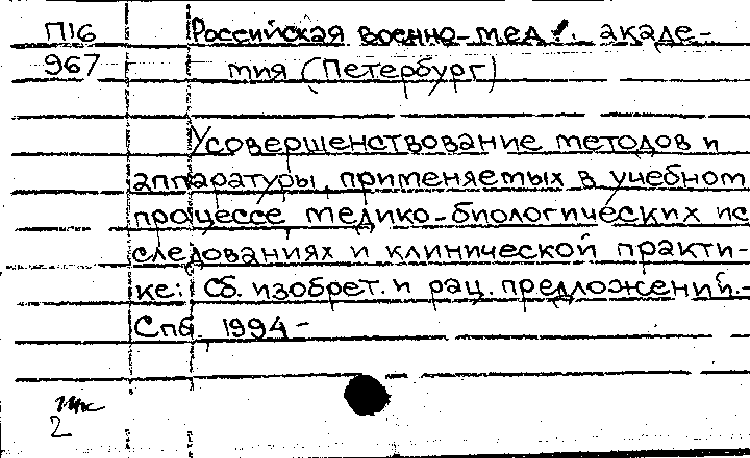 П16 Российская военно-мед. акаде-
967 мия (Петербург)
Усовершенствование методов и
аппаратуры, применяемых в учебном
процессе, медико-биологических ис
следованиях и клинической практи-
ке: Сб. изобрет. и рац. предложений.-
Спб. 1994-
2